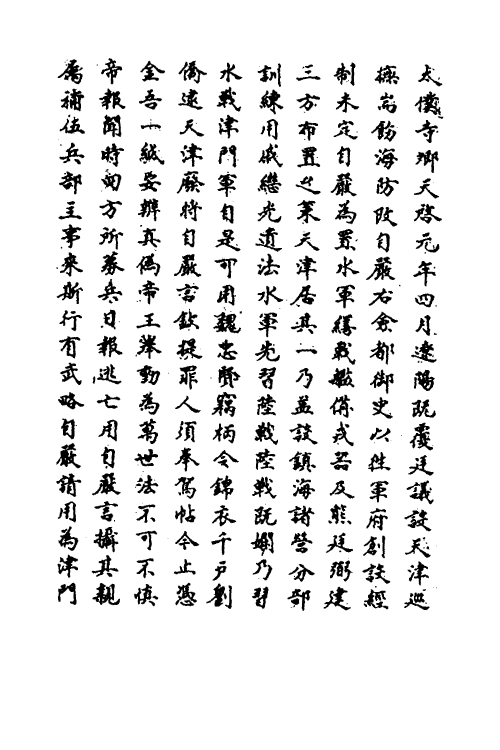 太僕寺卿天啓元年四月遼陽既覆廷議設天津巡
撫耑飭海防改自嚴右僉都御史以徃軍府創設經
制未定自嚴為置水軍繕戰艦備戎器及熊廷弼建
三方布置之策天津居其一乃益設鎮海諸營分部
訓練用戚繼光遺法水軍先習陸戰陸戰既嫻乃習
水戰津門軍自是可用魏忠賢竊柄令錦衣千戶劉
僑逮天津廢將自嚴言欽提罪人須奉駕帖今止憑
金吾一紙安辨真偽帝王舉動為萬世法不可不慎
帝報聞時四方所募兵日報逃亡用自嚴言攝其親
屬補伍兵部主事來斯行有武略自嚴請用為津門